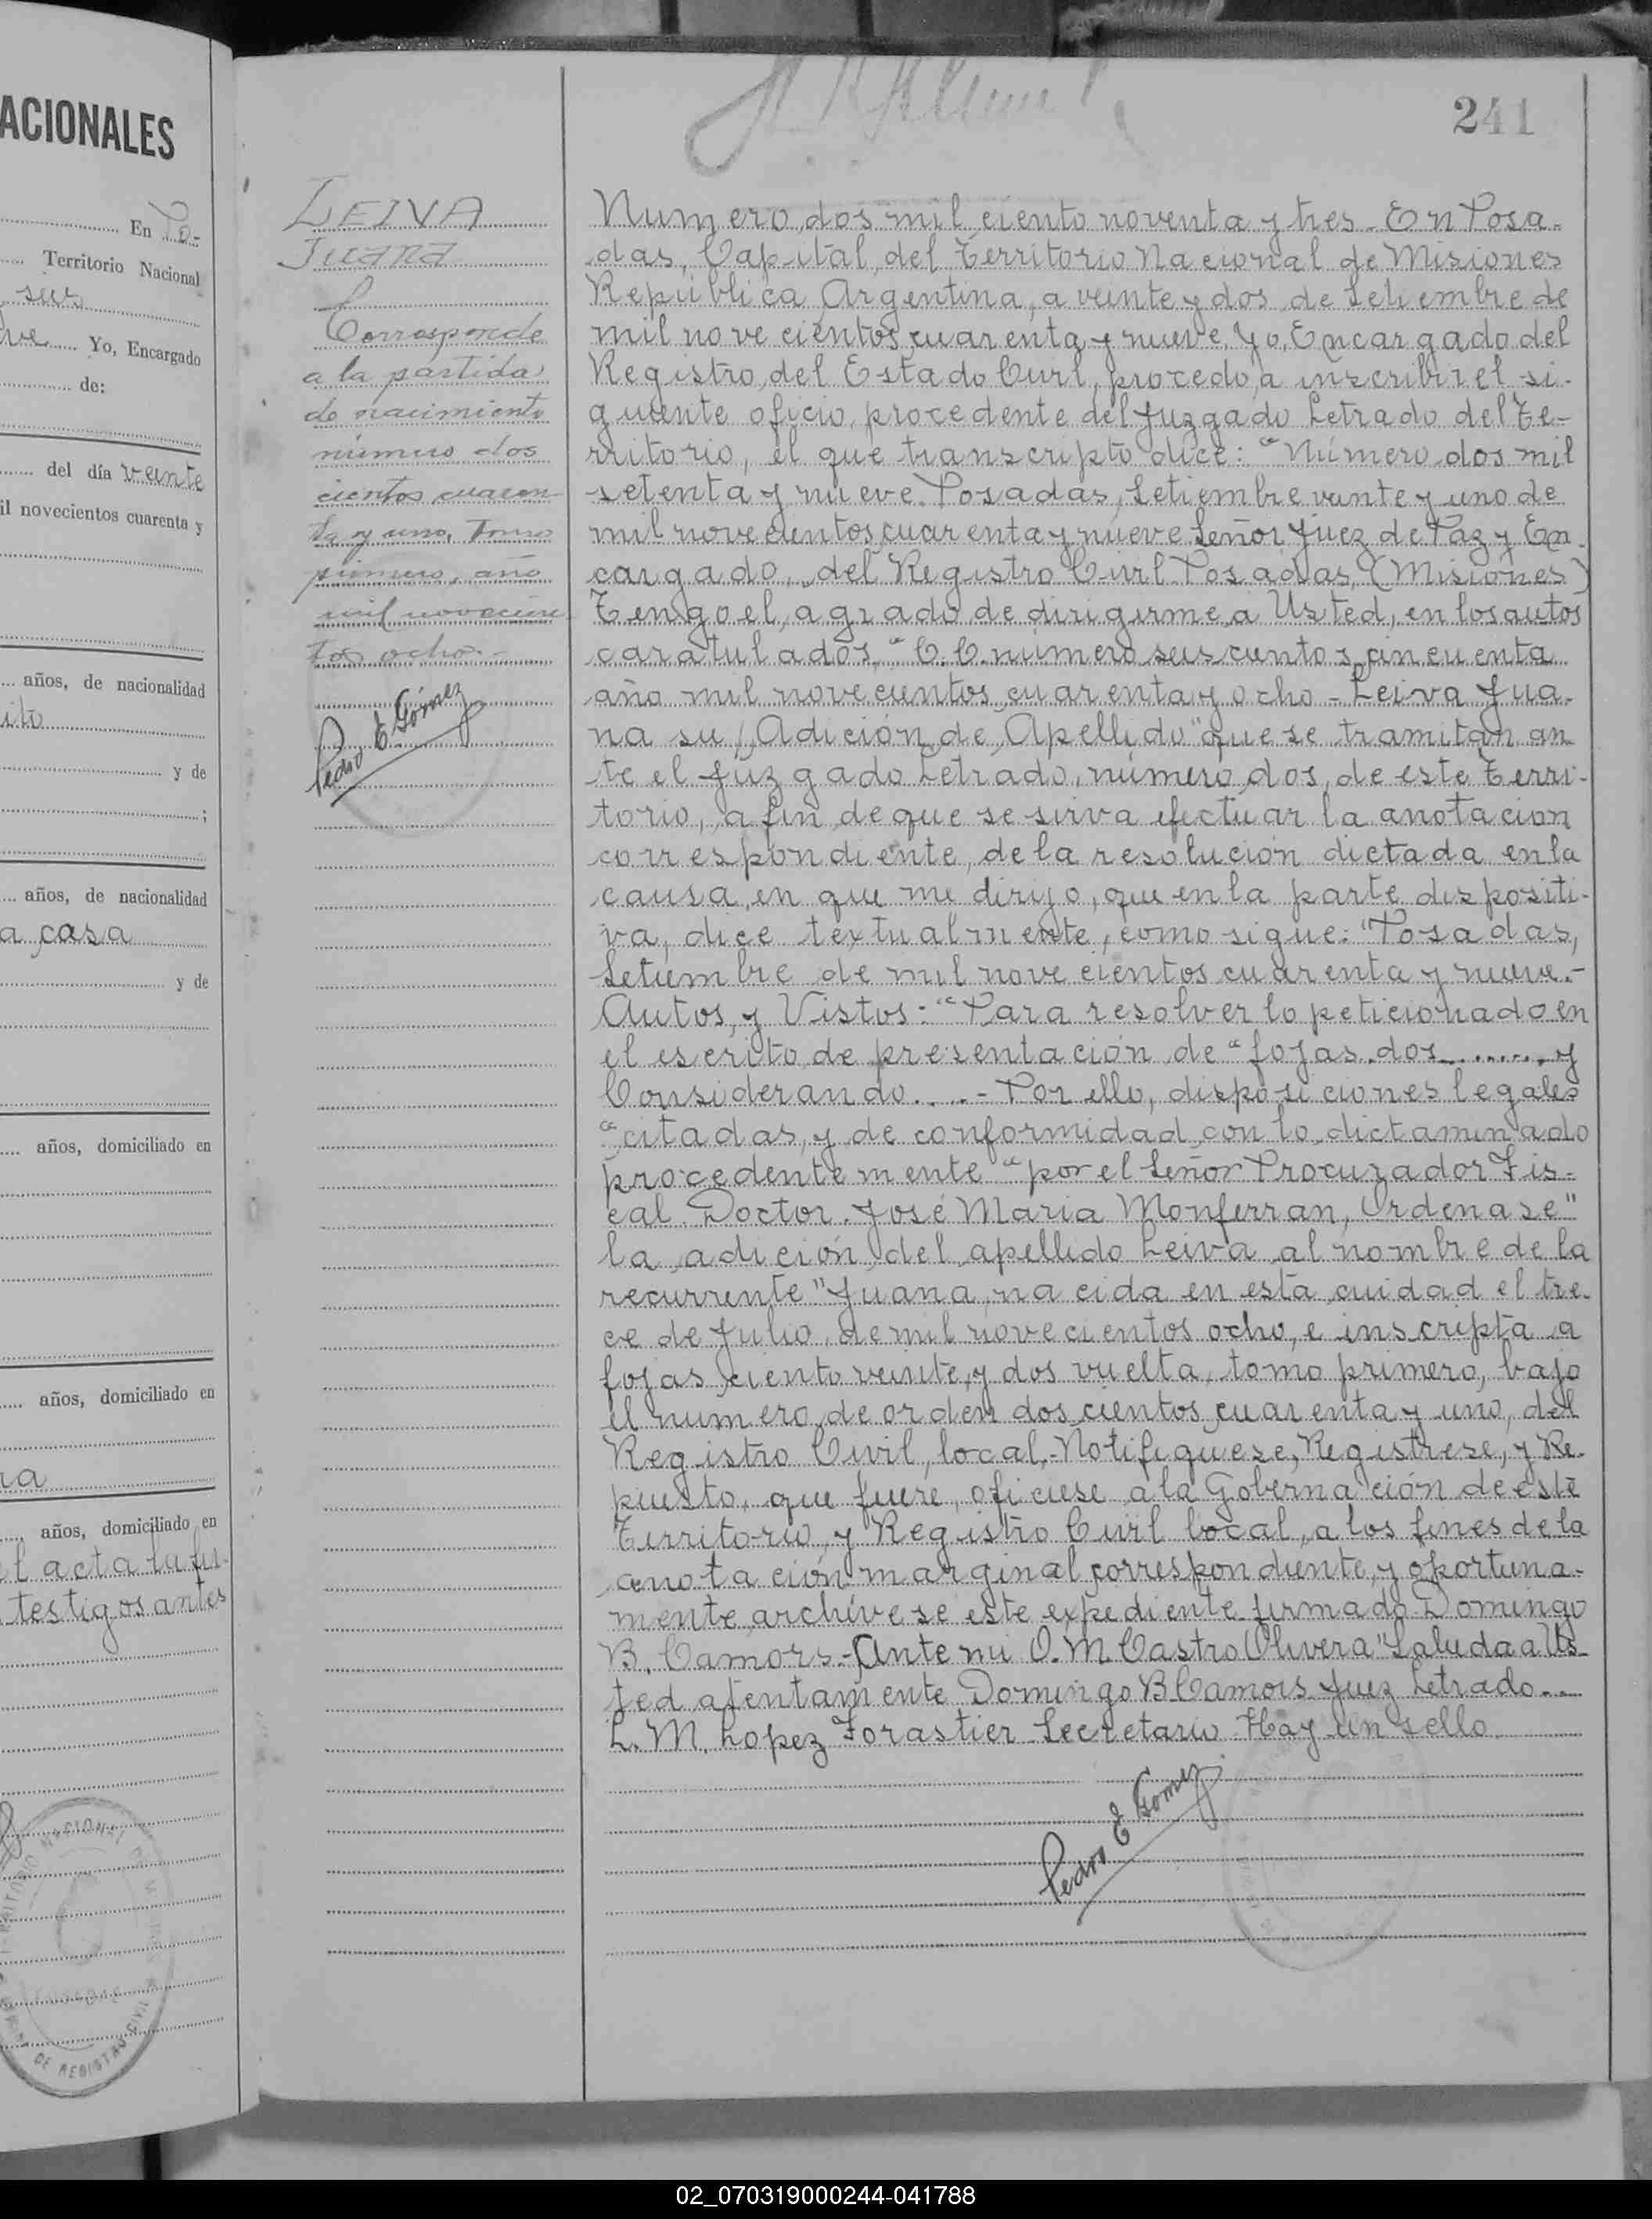 ACIONALES
En Po-
Territorio Nacional
Yo, Encargado
de:
del día veinte
il novecientos cuarenta y
años, de nacionalidad
ito
y de
años, de nacionalidad
a casa
y de
años, domiciliado en
años, domiciliado en
na
años, domiciliado en
el acta la fir-
testigos antes
241
LEIVA
Juana
Corresponde
a la partida
de nacimiento
número dos
cientos cuaren
ta y uno, Tomo
primero, año
mil novecien
tos ocho.-
Pedro E Gómez
Numero dos mil ciento noventa y tres. En Posa-
das, Capital del Territorio Nacional de Misiones
República Argentina, a veinte y dos de Setiembre de
mil novecientos cuarenta y nueve. Yo, Encargado del
Registro del Estado Civil, procedo a inscribir el si-
guiente oficio, procedente del Juzgado Letrado del Te-
rritorio, el que transcripto dice: "Número dos mil
setenta y nueve. Posadas, Setiembre veinte y uno de
mil novecientos cuarenta y nueve Señor Juez de Paz y En-
cargado, del Registro Civil Posadas, (Misiones)
Tengo el agrado de dirigirme a Usted, en los autos
caratulados, "C.C. número seiscientos cincuenta
año mil novecientos cuarenta y ocho - Leiva Jua-
na su/ Adición de Apellido" que se tramitan an
te el Juzgado Letrado, número dos, de este Terri-
torio, a fin de que se sirva efectuar la anotacion
correspondiente, de la resolución dictada en la
causa, en que me dirijo, que en la parte dispositi-
va, dice textualmente, como sigue: "Posadas,
Setiembre de mil novecientos cuarenta y nueve.-
Autos, y Vistos: "Para resolver lo peticionado en
el escrito de presentación de "fojas dos......... y
Considerando....- Por ello, disposiciones legales
"citadas, y de conformidad con lo dictaminado
procedentemente "por el Señor Procurador Fis-
cal Doctor. José Maria Monferran, Ordenase"
la adición del apellido Leiva al nombre de la
recurrente "Juana, nacida en esta cuidad el tre-
ce de Julio, de mil novecientos ocho, e inscripta a
fojas ciento veinte y dos vuelta, tomo primero, bajo
el numero de orden dos cientos cuarenta y uno, del
Registro Civil, local.- Notifiquese, Registrese, y Re-
puesto, que fuere, oficiese a la Gobernación de este
Territorio, y Registro Civil local, a los fines de la
anotación marginal correspondiente, y oportuna-
mente, archivese este expediente firmado Domingo
B. Camors.- Ante mi O. M. Castro Olivera "Saluda a Us-
ted atentamente Domingo B. Camors Juez Letrado...
L. M. Lopez Forastier Secretario. Hay un sello.
Pedro E Gomez
02_070319000244-041788